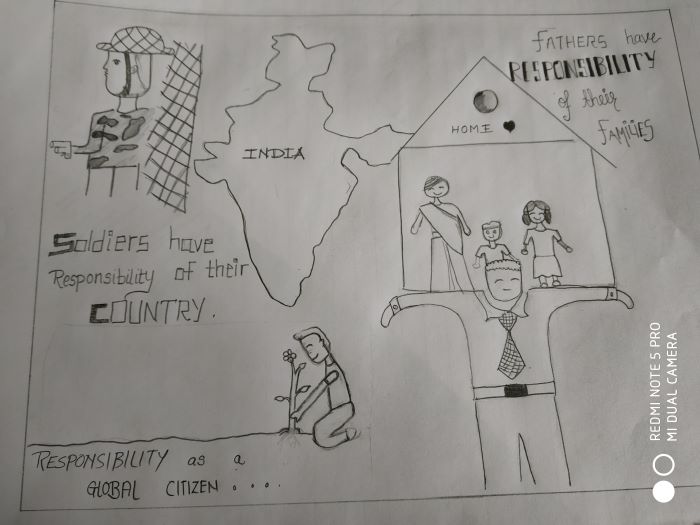 FATHERS have
RESPONSIBILITY
of their
FAMILIES
HOME
INDIA
Soldiers have
Responsibility of their
COUNTRY.
RESPONSIBILITY as a
GLOBAL CITIZEN ....
REDMI NOTE 5 PRO
MI DUAL CAMERA